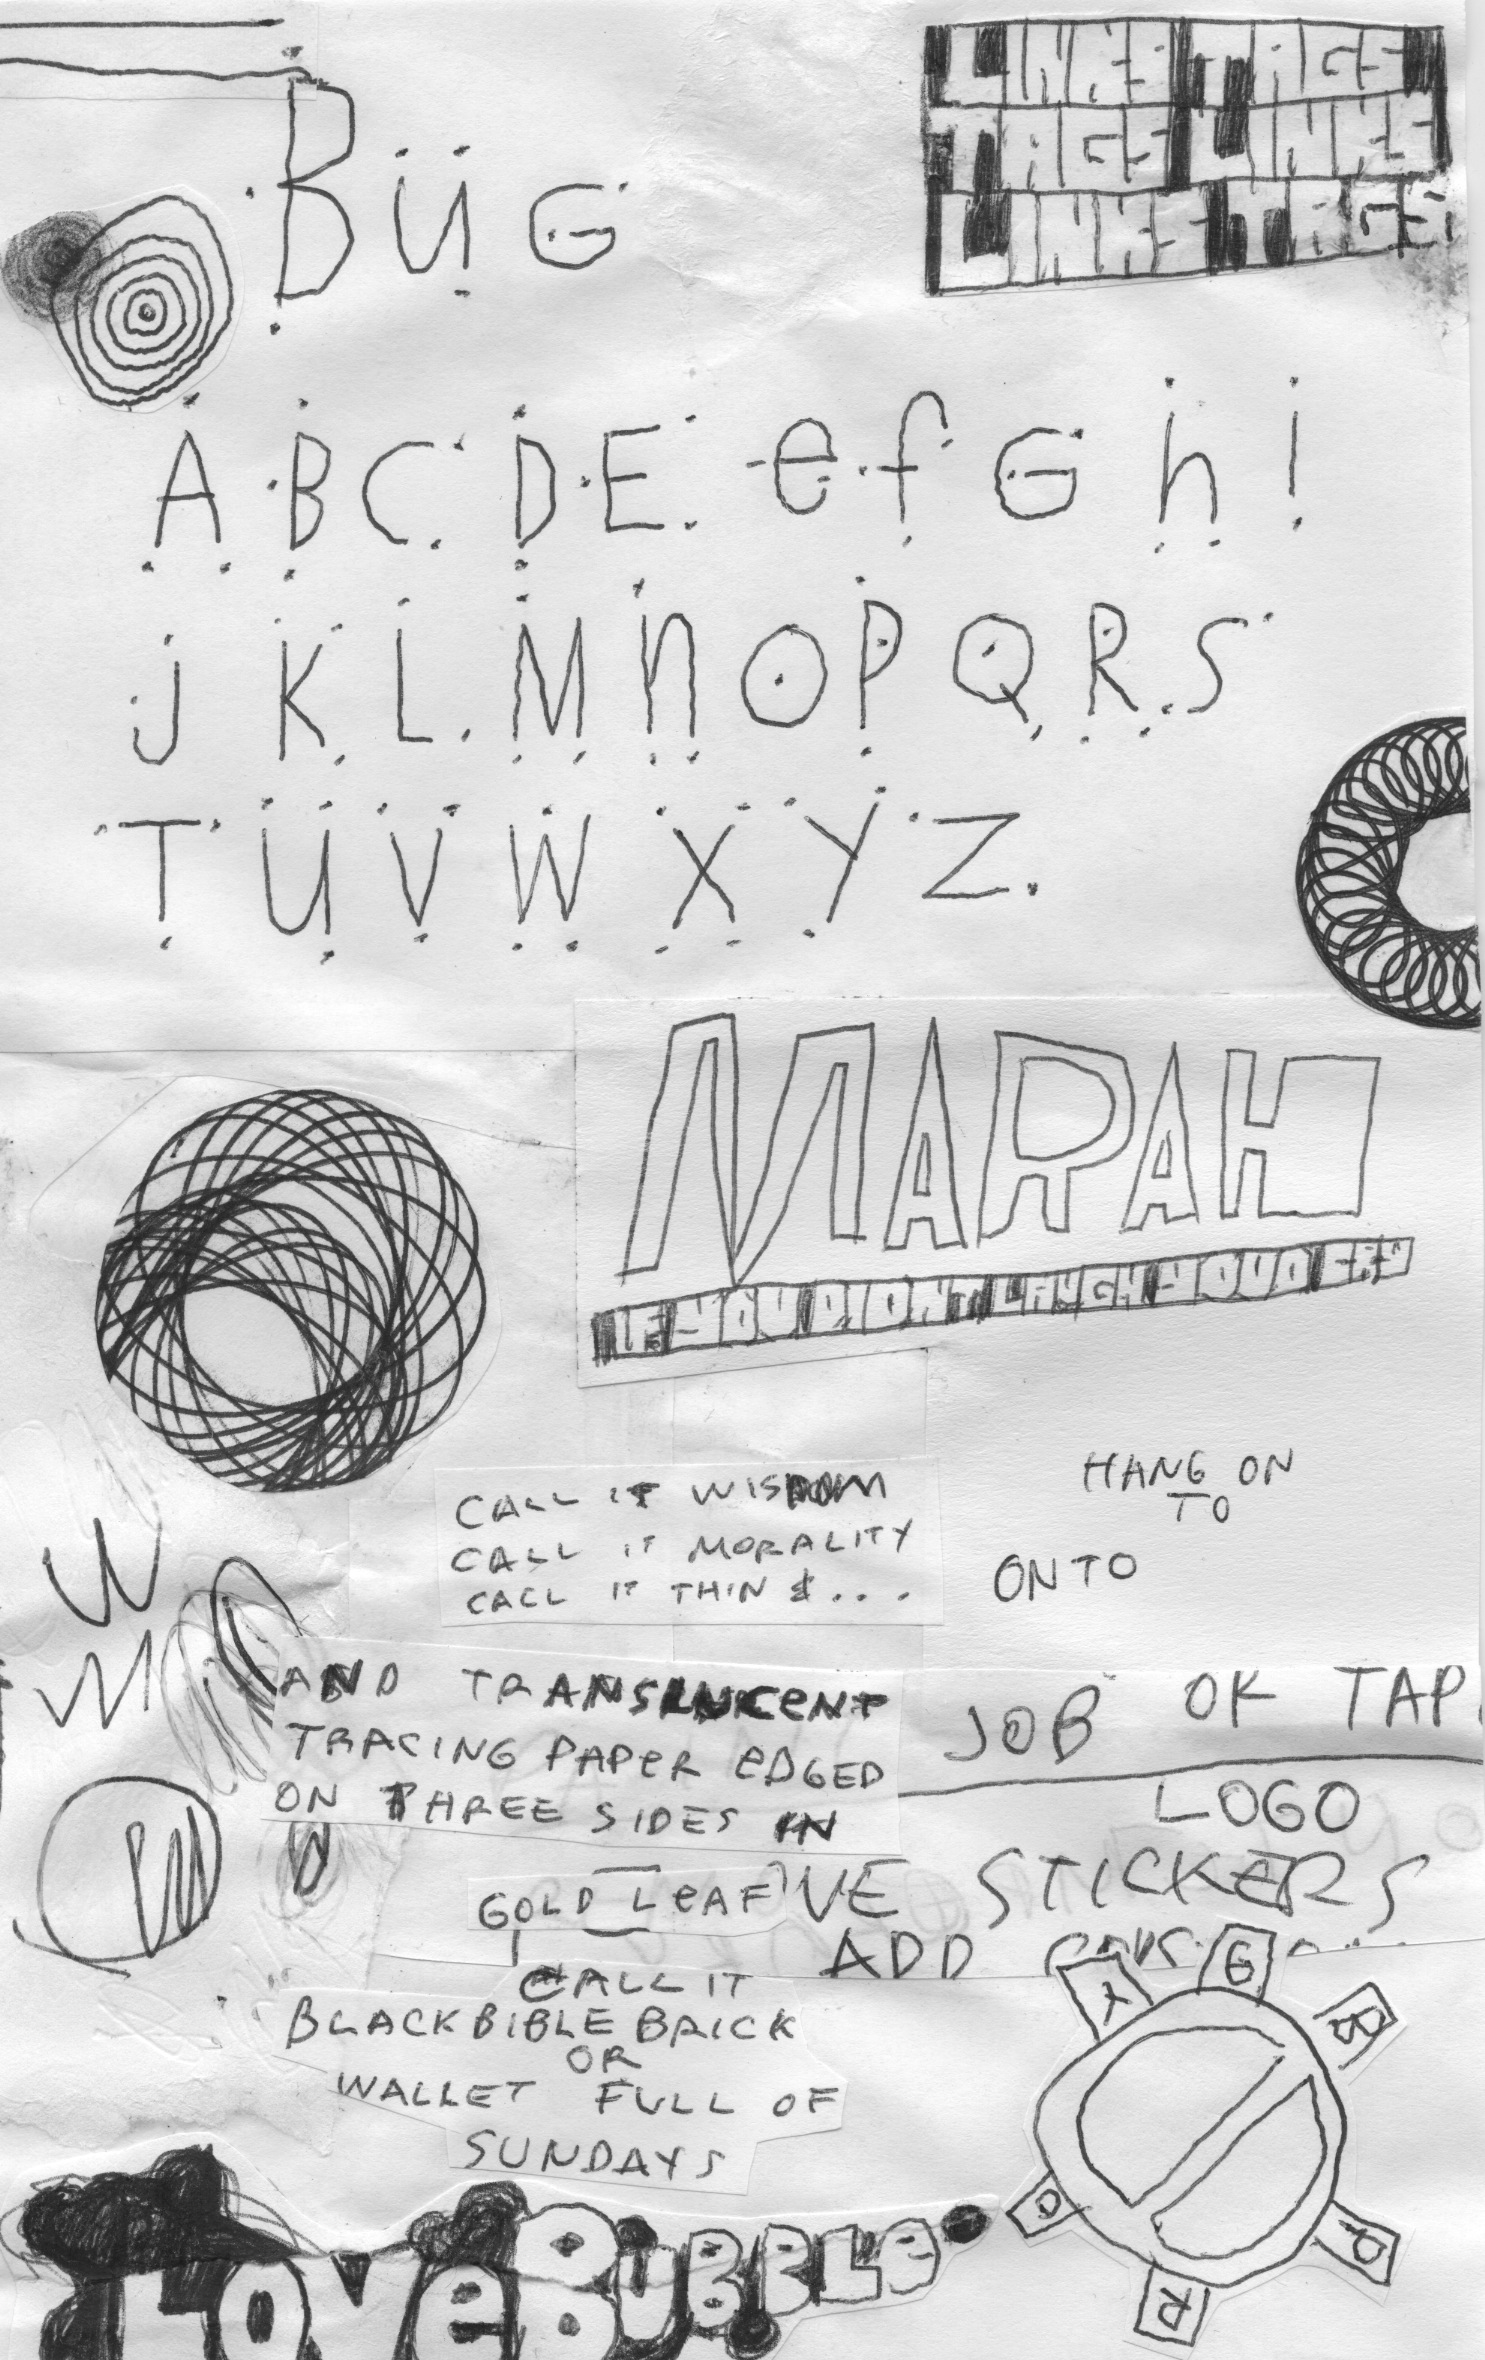 BüG
LINES TAGS
TAGS LINES
LINES TAGS
A B C D E e f G h I
J K L M N O P Q R S
T U V W X Y Z
MARAH
IF YOU DIDNT LAUGH YOUD CRY
CALL IT WISDOM
CALL IT MORALITY
CALL IT THIN &....
HANG ON
TO
ONTO
AND TRANSLUCENT
TRACING PAPER EDGED
ON THREE SIDES IN
GOLD LEAF
JOB OK TAP
LOGO
VE STICKERS
ADD
CALL IT
BLACK BIBLE BRICK
OR
WALLET FULL OF
SUNDAYS
Y G B
O P R
LOVE BUBBLE